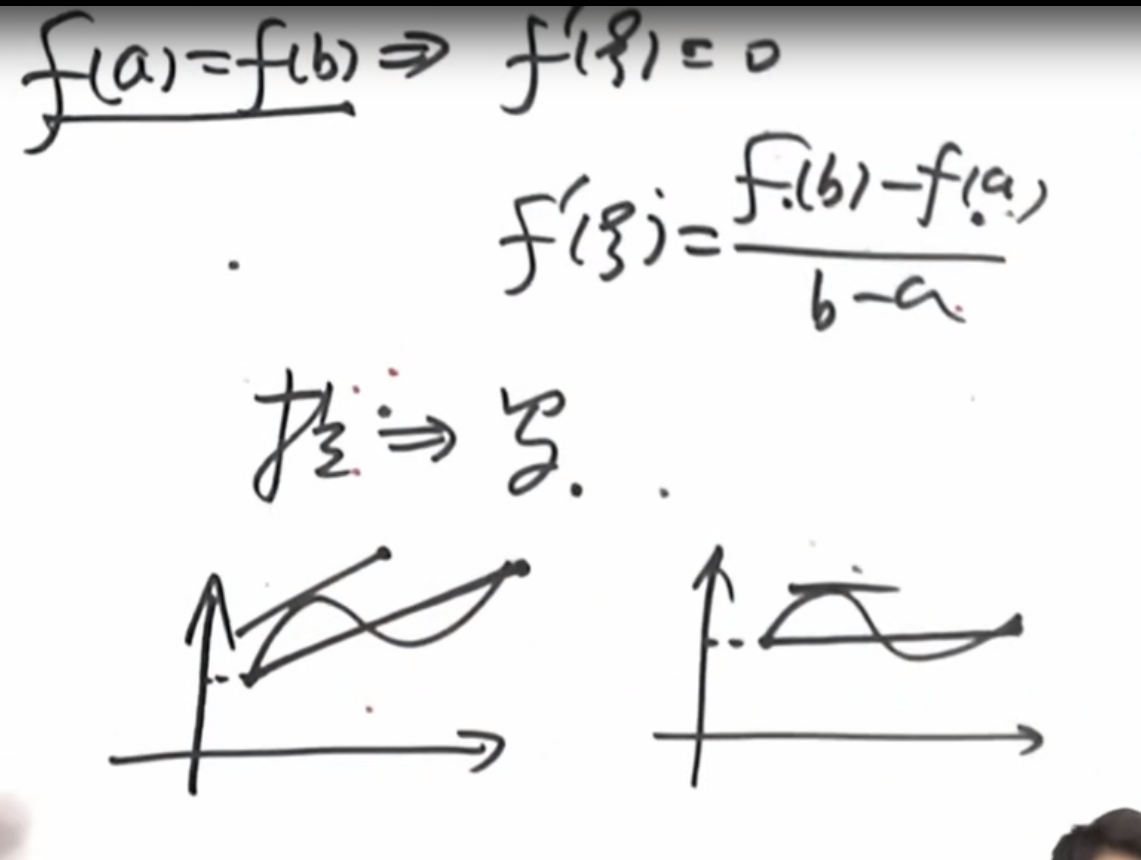 f(a)=f(b) ⇒ f'(ξ)=0
f'(ξ)=\frac{f(b)-f(a)}{b-a}
⇒ ξ.